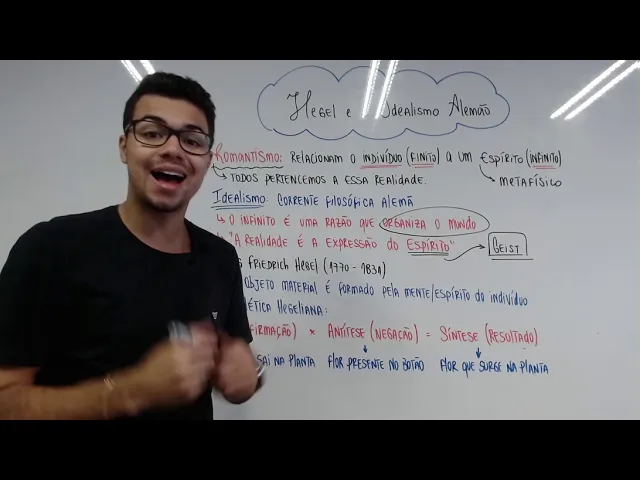 Hegel e Idealismo Alemão
Romantismo: relacionam o indivíduo (finito) a um espírito (infinito)
↳ todos pertencemos a essa realidade. ↳ metafísico
Idealismo: corrente filosófica alemã
↳ o infinito é uma razão que organiza o mundo
↳ "A realidade é a expressão do espírito" → Geist
Friedrich Hegel (1770 - 1831)
objeto material é formado pela mente/espírito do indivíduo
ética Hegeliana:
firmação) × Antítese (negação) = Síntese (resultado)
sai na planta flor presente no botão flor que surge na planta